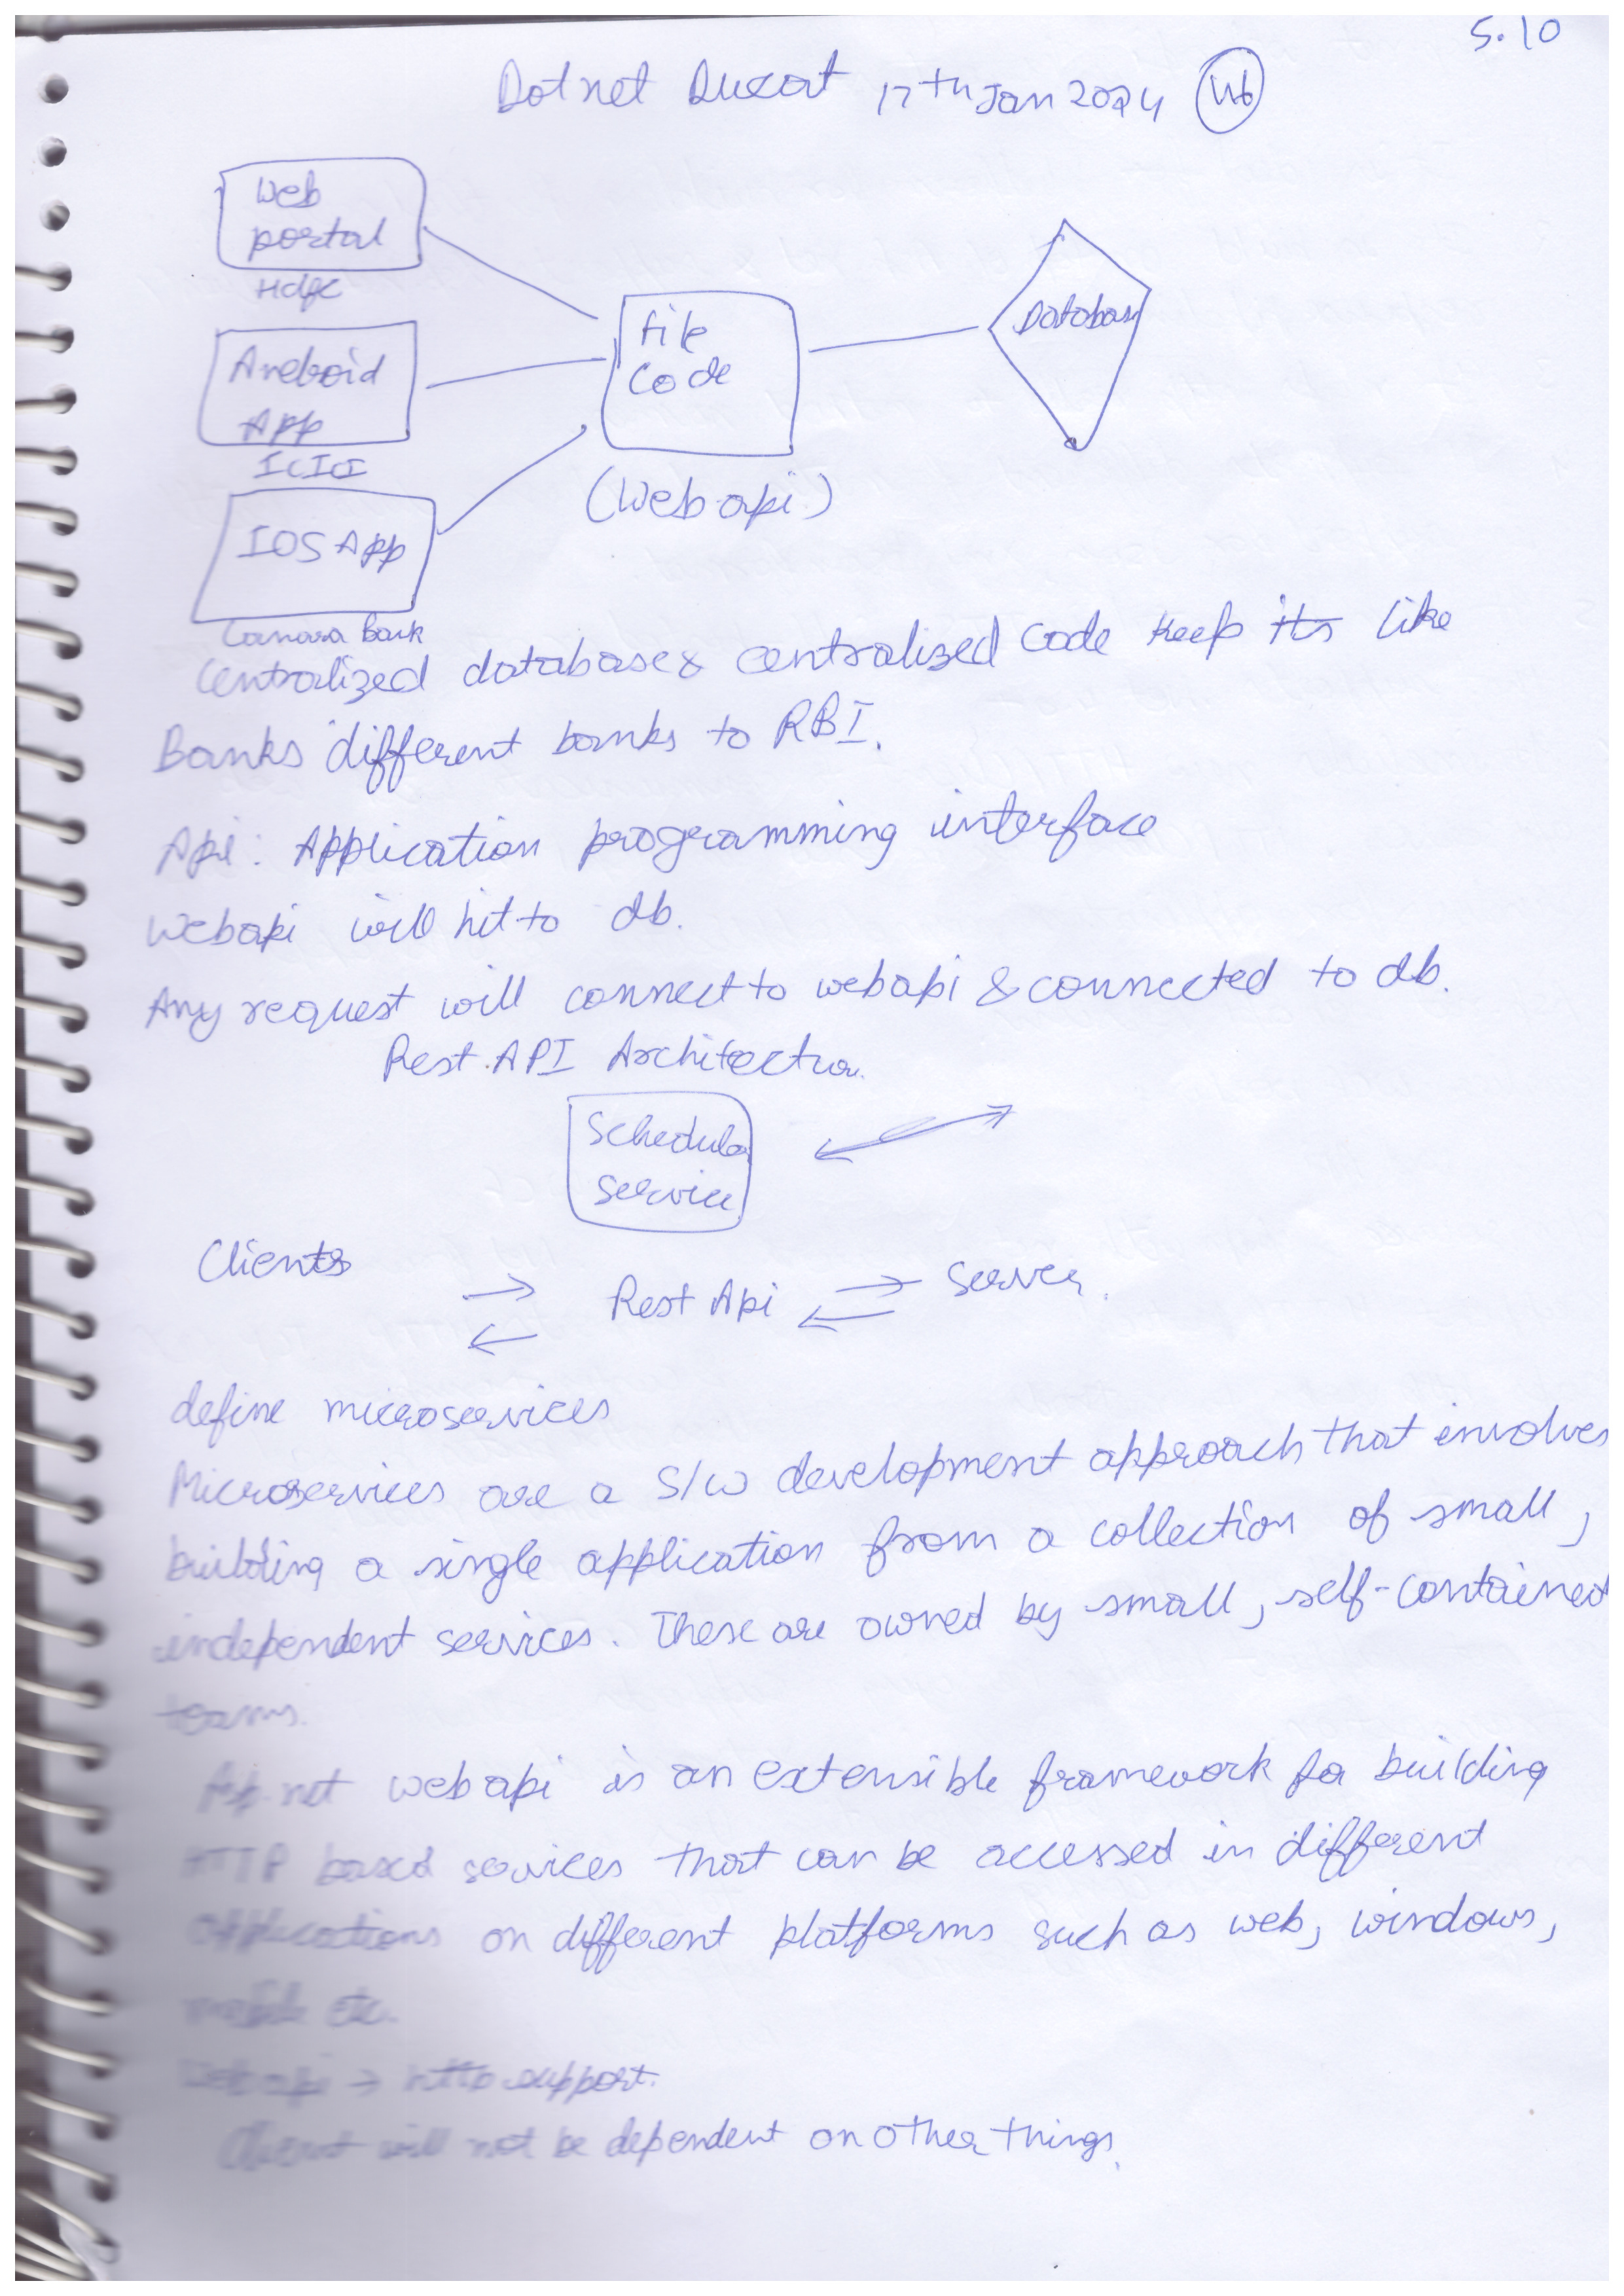 5.10
Dotnet Ducat 17th Jan 2024
Web
portal
Hdfc
File
Code
Database
Android
App
ICICI
(Web api)
IOS App
Canara Bank
Centralized database & centralized code keep its like
Banks different banks to RBI.
Api: Application programming interface
Webapi will hit to db.
Any request will connect to webapi & connected to db.
Rest API Architecture
Schedular
Service
Clients
Rest Api
Server.
define microservices
Microservices are a S/w development approach that involves
building a single application from a collection of small,
independent services. These are owned by small, self-contained
teams.
Asp.net web api is an extensible framework for building
HTTP based services that can be accessed in different
applications on different platforms such as web, windows,
mobile etc.
Web api → http support.
Client will not be dependent on other things.